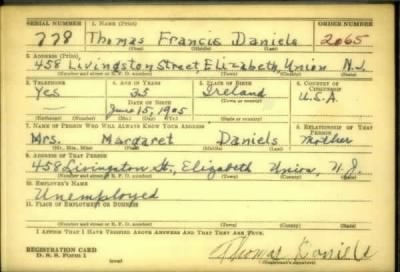 SERIAL NUMBER 1. NAME (Print) ORDER NUMBER
778 Thomas Francis Daniels 2065
(First) (Middle) (Last)
2. ADDRESS (Print)
458 Livingston Street, Elizabeth, Union N.J.
(Number and street or R. F. D. number) (Town) (County) (State)
3. TELEPHONE 4. AGE IN YEARS 5. PLACE OF BIRTH 6. COUNTRY OF CITIZENSHIP
Yes 35 Ireland
DATE OF BIRTH (Town or county) U.S.A.
June 15, 1905
(Mo.) (Day) (Yr.) (State or country)
7. NAME OF PERSON WHO WILL ALWAYS KNOW YOUR ADDRESS 8. RELATIONSHIP OF THAT PERSON
Mrs. Margaret Daniels Mother
(Mr., Mrs., Miss) (First) (Middle) (Last)
9. ADDRESS OF THAT PERSON
458 Livingston St., Elizabeth Union, N.J.
(Number and street or R. F. D. number) (Town) (County) (State)
10. EMPLOYER'S NAME
Unemployed
11. PLACE OF EMPLOYMENT OR BUSINESS
(Number and street or R. F. D. number) (Town) (County) (State)
I AFFIRM THAT I HAVE VERIFIED ABOVE ANSWERS AND THAT THEY ARE TRUE.
REGISTRATION CARD
D. S. S. Form 1 (over) Thomas Daniels